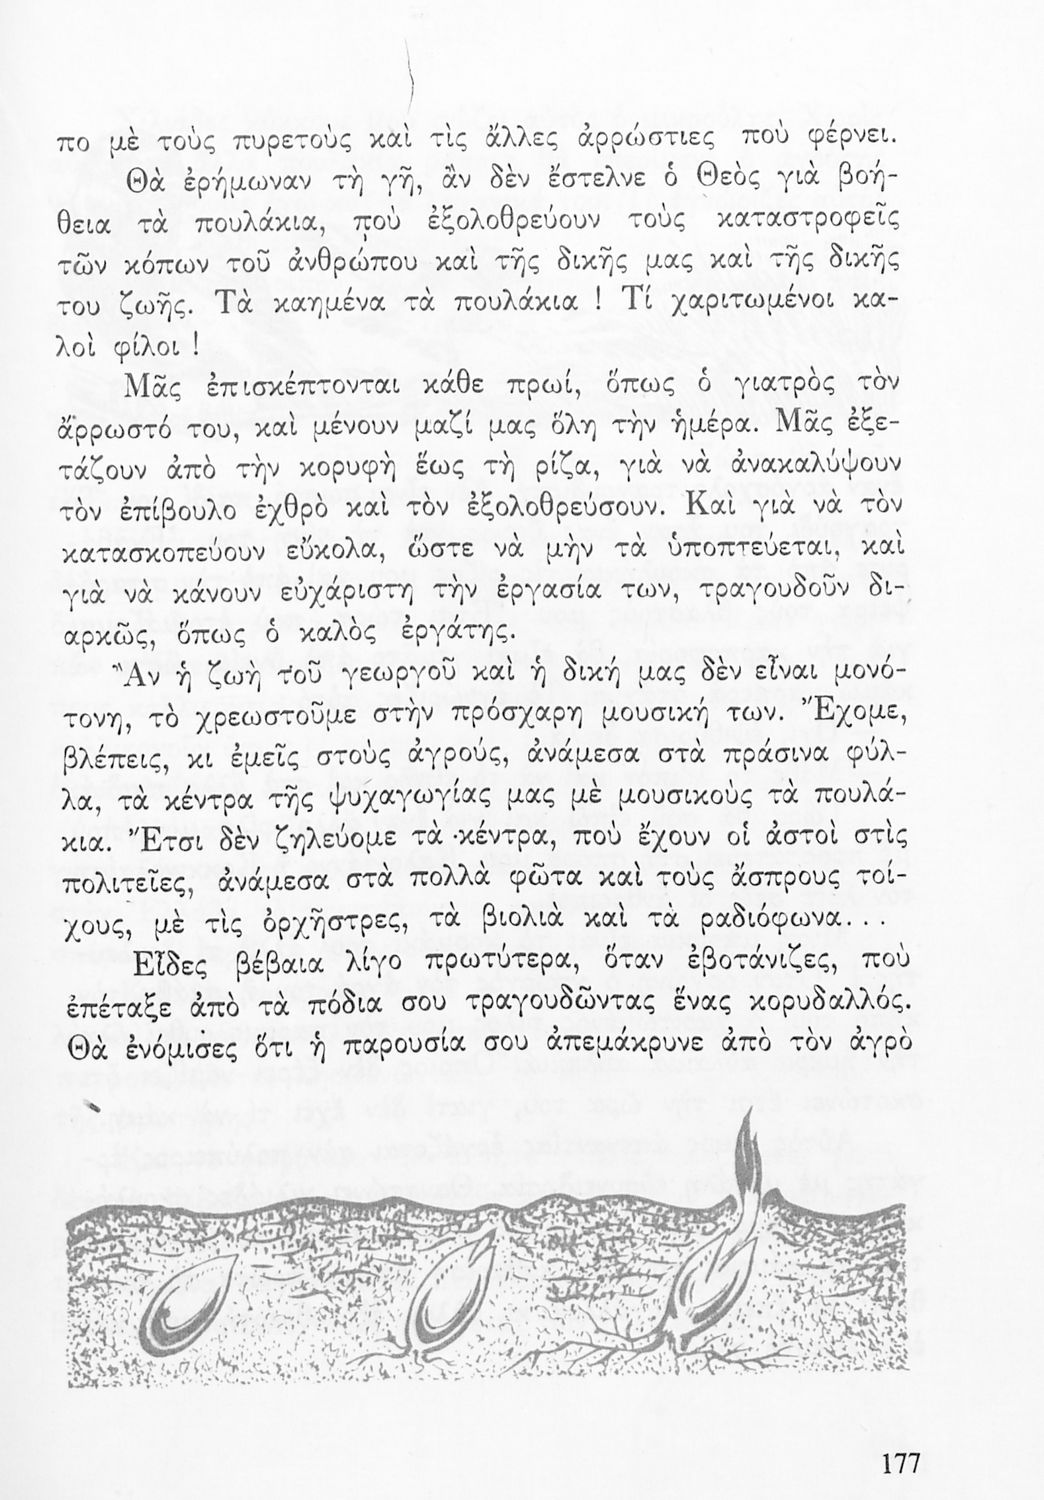 πο μὲ τοὺς πυρετοὺς καὶ τὶς ἄλλες ἀρρώστιες ποὺ φέρνει.
Θὰ ἐρήμωναν τὴ γῆ, ἂν δὲν ἔστελνε ὁ Θεὸς γιὰ βοή-
θεια τὰ πουλάκια, ποὺ ἐξολοθρεύουν τοὺς καταστροφεῖς
τῶν κόπων τοῦ ἀνθρώπου καὶ τῆς δικῆς μας καὶ τῆς δικῆς
του ζωῆς. Τὰ καημένα τὰ πουλάκια ! Τί χαριτωμένοι κα-
λοὶ φίλοι !
Μᾶς ἐπισκέπτονται κάθε πρωί, ὅπως ὁ γιατρὸς τὸν
ἄρρωστό του, καὶ μένουν μαζί μας ὅλη τὴν ἡμέρα. Μᾶς ἐξε-
τάζουν ἀπὸ τὴν κορυφὴ ἕως τὴ ρίζα, γιὰ νὰ ἀνακαλύψουν
τὸν ἐπίβουλο ἐχθρὸ καὶ τὸν ἐξολοθρεύσουν. Καὶ γιὰ νὰ τὸν
κατασκοπεύουν εὔκολα, ὥστε νὰ μὴν τὰ ὑποπτεύεται, καὶ
γιὰ νὰ κάνουν εὐχάριστη τὴν ἐργασία των, τραγουδοῦν δι-
αρκῶς, ὅπως ὁ καλὸς ἐργάτης.
Ἂν ἡ ζωὴ τοῦ γεωργοῦ καὶ ἡ δική μας δὲν εἶναι μονό-
τονη, τὸ χρεωστοῦμε στὴν πρόσχαρη μουσική των. Ἔχομε,
βλέπεις, κι ἐμεῖς στοὺς ἀγρούς, ἀνάμεσα στὰ πράσινα φύλ-
λα, τὰ κέντρα τῆς ψυχαγωγίας μας μὲ μουσικοὺς τὰ πουλά-
κια. Ἔτσι δὲν ζηλεύομε τὰ κέντρα, ποὺ ἔχουν οἱ ἀστοὶ στὶς
πολιτεῖες, ἀνάμεσα στὰ πολλὰ φῶτα καὶ τοὺς ἄσπρους τοί-
χους, μὲ τὶς ὀρχῆστρες, τὰ βιολιὰ καὶ τὰ ραδιόφωνα. . .
Εἶδες βέβαια λίγο πρωτύτερα, ὅταν ἐβοτάνιζες, ποὺ
ἐπέταξε ἀπὸ τὰ πόδια σου τραγουδῶντας ἕνας κορυδαλλός.
Θὰ ἐνόμισες ὅτι ἡ παρουσία σου ἀπεμάκρυνε ἀπὸ τὸν ἀγρὸ
177